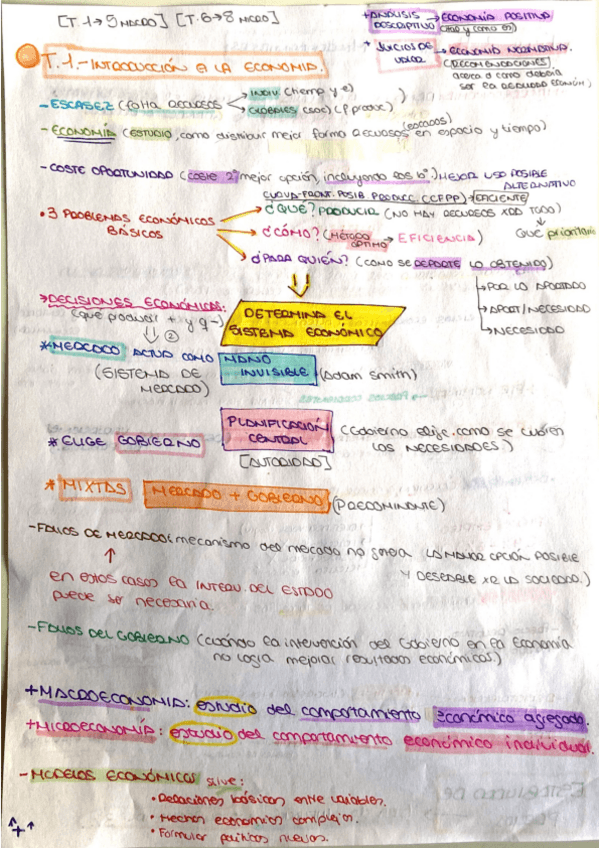 [T.1→5 MACRO] [T.6→8 MICRO]
+ANÁLISIS DESCRIPTIVO → ECONOMÍA POSITIVA (tal y como es)
+ JUICIOS DE VALOR → ECONOMÍA NORMATIVA.
(RECOMENDACIONES)
acerca d como debería
ser la realidad económ)
T.1.- INTRODUCCIÓN A LA ECONOMÍA.
-ESCASEZ (falta recursos
INDIV. (temp y €)
GLOBALES (soc) (f.produc)
)
-ECONOMÍA (ESTUDIO, como distribuir mejor forma recursos (escasos) en espacio y tiempo)
-COSTE OPORTUNIDAD (coste 2ª mejor opción, incluyendo los bº.) MEJOR USO POSIBLE ALTERNATIVO
CURVA-FRONT. POSIB. PRODUCC. (CFPP) → EFICIENTE
• 3 PROBLEMAS ECONÓMICOS BÁSICOS
¿QUÉ? PRODUCIR (NO HAY RECURSOS XRA TODO)
↓
QUÉ prioritario
¿CÓMO? (MÉTODO ÓPTIMO → EFICIENCIA)
¿PARA QUIÉN? (COMO SE REPARTE LO OBTENIDO)
→POR LO APORTADO
→APORT/NECESIDAD
→NECESIDAD
DETERMINA EL
SISTEMA ECONÓMICO
→DECISIONES ECONÓMICAS:
(qué producir + y q -)
②
*MERCADO ACTÚA COMO MANO INVISIBLE (Adam Smith)
(SISTEMA DE
MERCADO)
* ELIGE GOBIERNO PLANIFICACIÓN CENTRAL (Gobierno elije como se cubren
LAS NECESIDADES)
[AUTORIDAD]
* MIXTAS MERCADO + GOBIERNO (PREDOMINANTE)
-FALLOS DE MERCADO: mecanismo del mercado no genera LA MEJOR OPCIÓN POSIBLE
Y DESEABLE XR LA SOCIEDAD.)
↑
en estos casos la INTERV. DEL ESTADO
puede ser necesaria.
-FALLOS DEL GOBIERNO (cuando la intervención del Gobierno en la Economía
no logra mejorar resultados económicos)
+MACROECONOMÍA: estudio del comportamiento económico agregado.
+MICROECONOMÍA: estudio del comportamiento económico individual.
-MODELOS ECONÓMICOS sirve:
• Relaciones básicas entre variables.
• Hechos económicos complejos.
• Formular políticas nuevas.